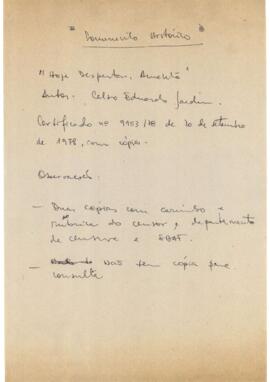 " Documento Histórico "
"Hoje Despertar, Amanhã"
Autor: Celso Eduardo Jardim
Certificado nº 9953/78 de 20 de setembro
de 1978, com cópias.
Observações:
- Duas copias com carimbo e
rubrica do censor e departamento
de censura e SBAT.
- Não tem cópia para
consulta